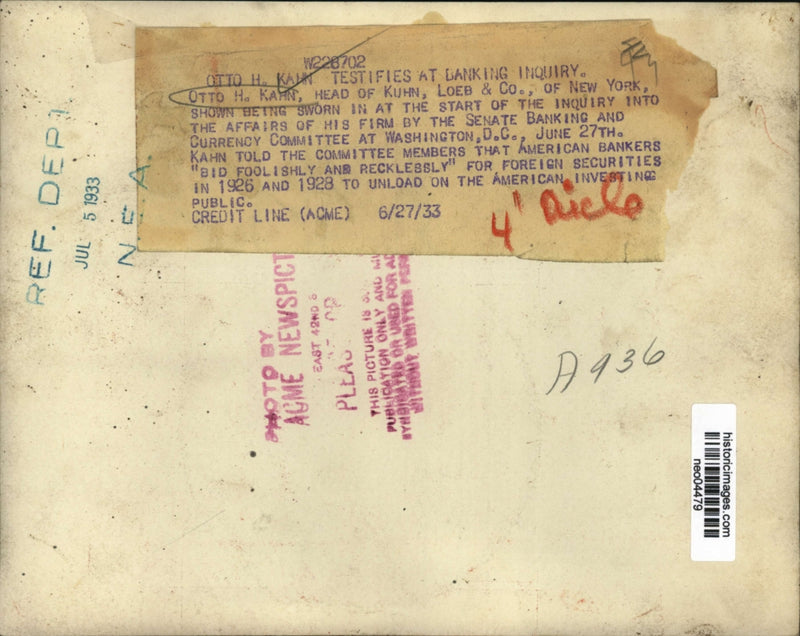 W226702
OTTO H. KAHN TESTIFIES AT BANKING INQUIRY.
OTTO H. KAHN, HEAD OF KUHN, LOEB & CO., OF NEW YORK,
SHOWN BEING SWORN IN AT THE START OF THE INQUIRY INTO
THE AFFAIRS OF HIS FIRM BY THE SENATE BANKING AND
CURRENCY COMMITTEE AT WASHINGTON, D.C., JUNE 27TH.
KAHN TOLD THE COMMITTEE MEMBERS THAT AMERICAN BANKERS
"BID FOOLISHLY AND RECKLESSLY" FOR FOREIGN SECURITIES
IN 1926 AND 1928 TO UNLOAD ON THE AMERICAN INVESTING
PUBLIC.
CREDIT LINE (ACME) 6/27/33
4"
REF. DEPT
JUL 5 1933
N.E.A.
PHOTO BY
ACME NEWSPICT
EAST 42ND S
THIS PICTURE IS
PUBLICATION ONLY AND
SYNDICATED OR USED FOR AD
WITHOUT WRITTEN PER
A936
historicimages.com
neo04479